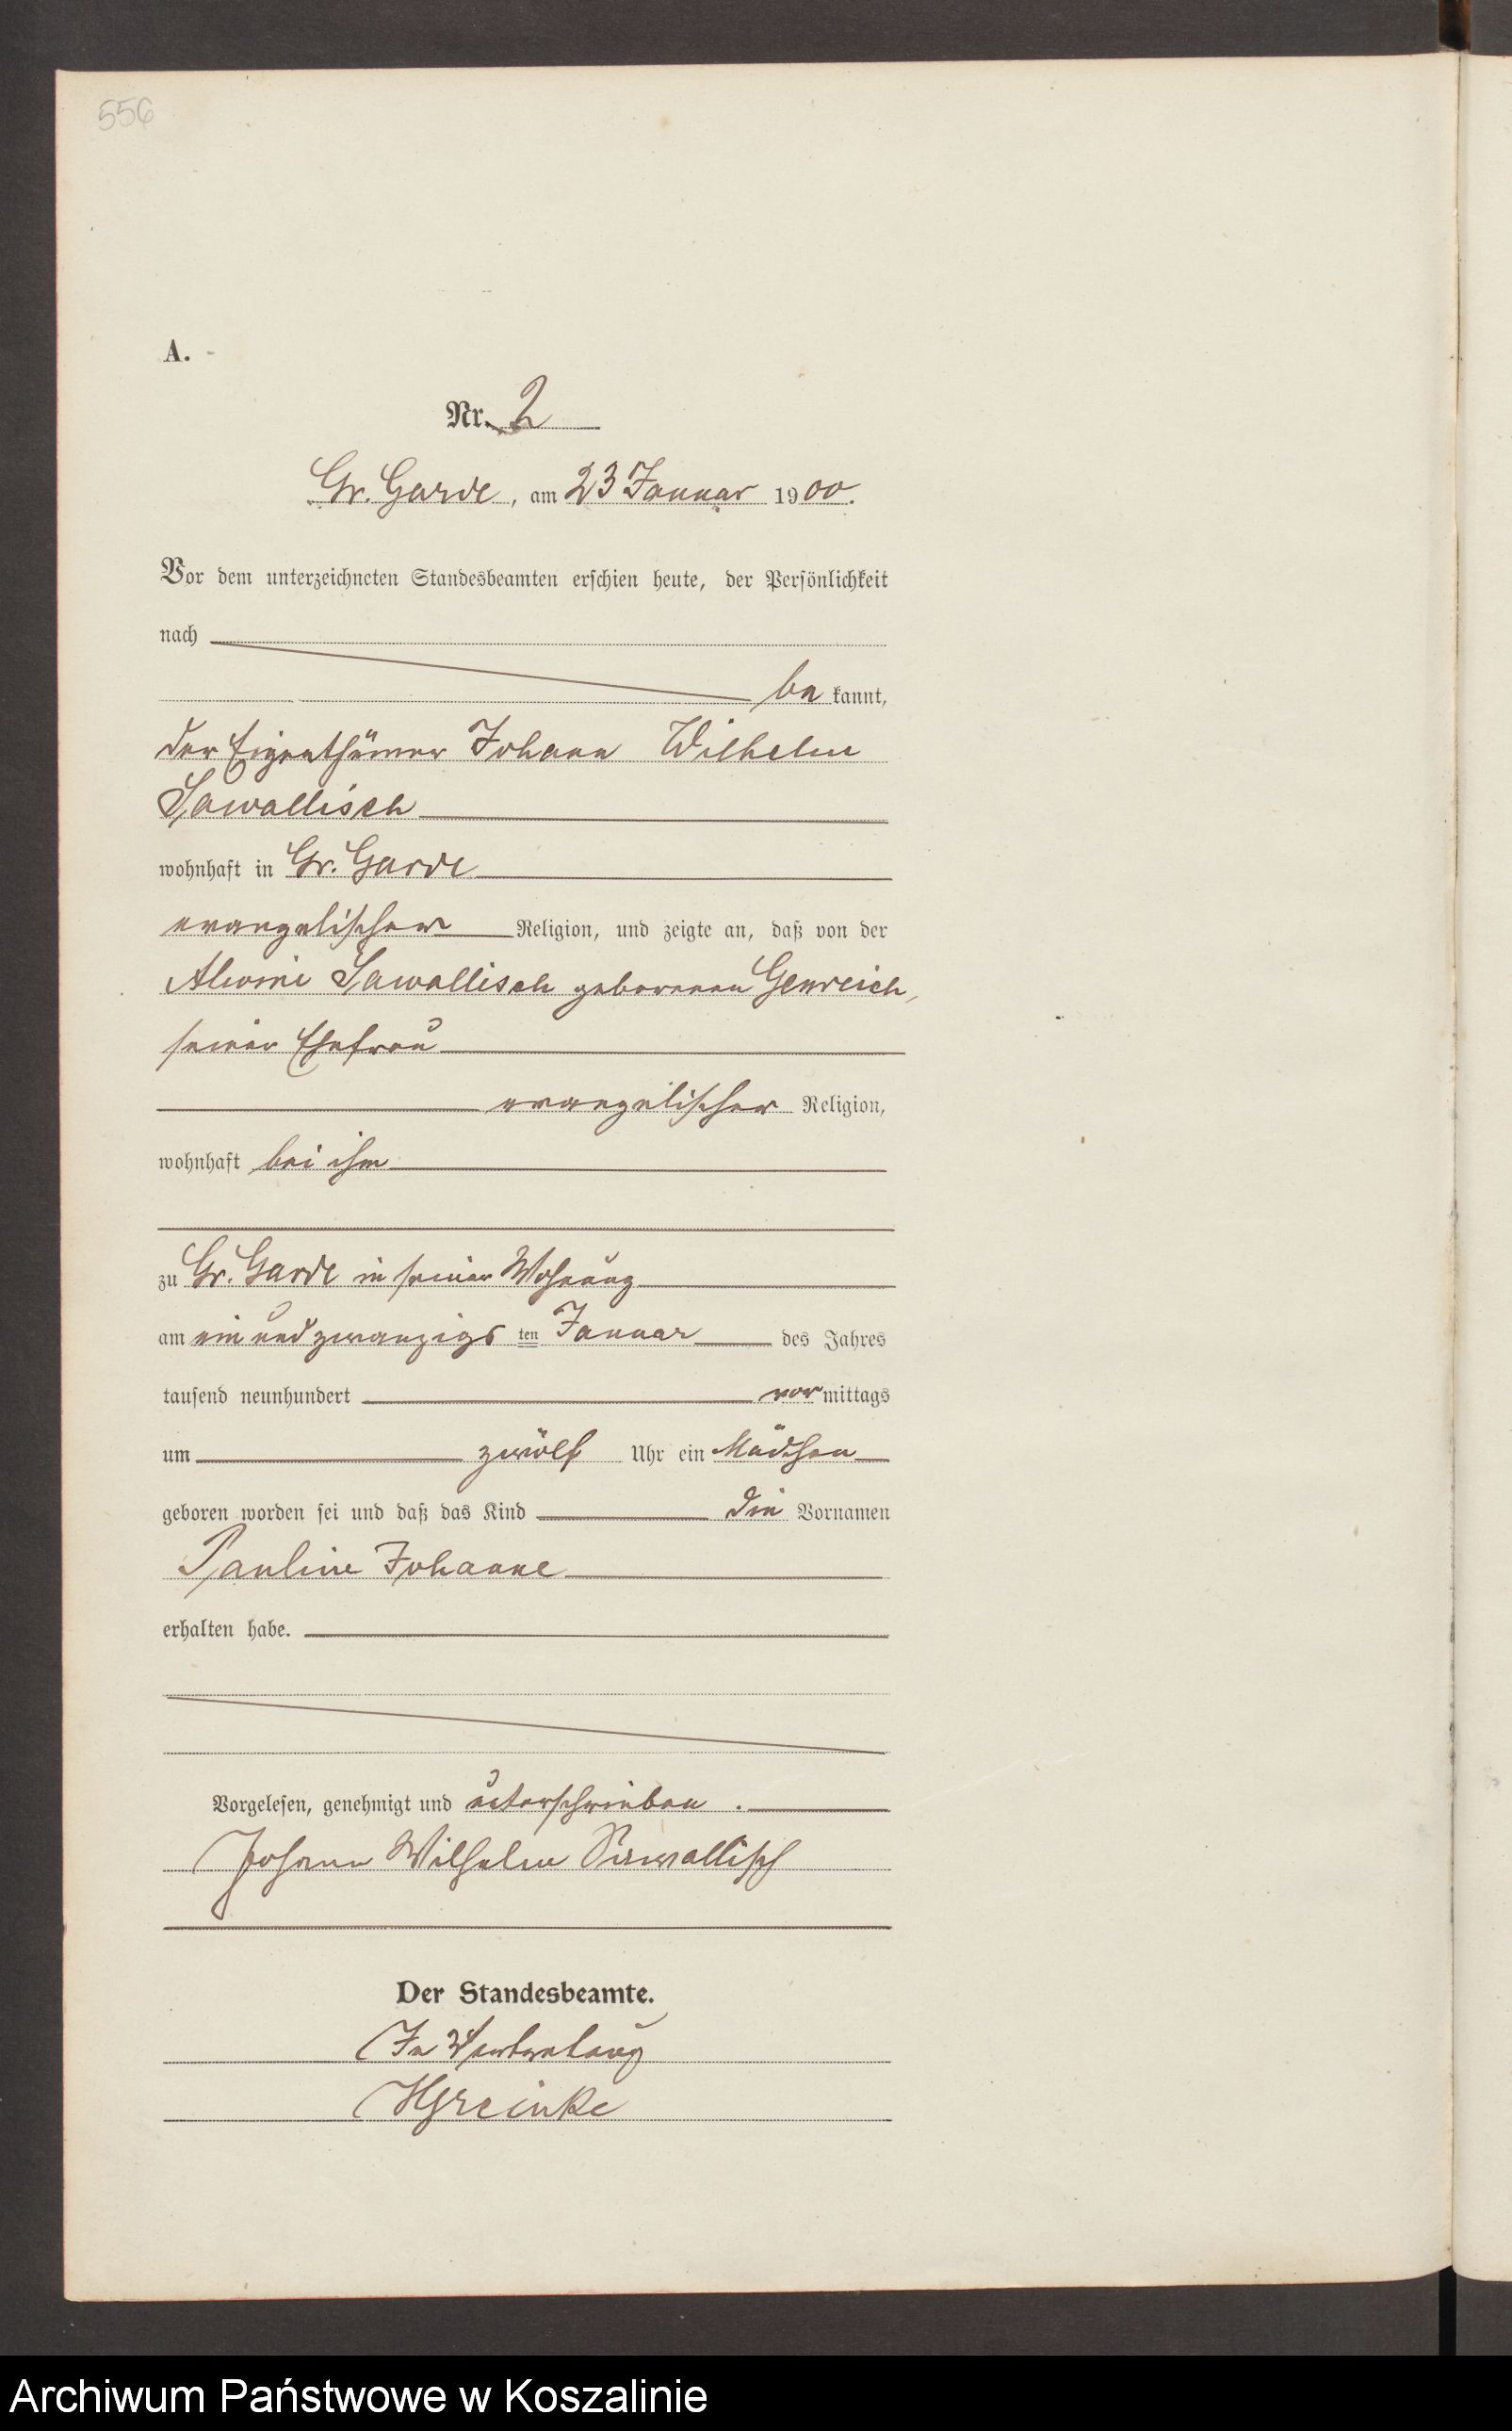 556
A.
Nr. 2
Gr. Garde, am 23 Januar 1900.
Vor dem unterzeichneten Standesbeamten erschien heute, der Persönlichkeit
nach
be kannt,
der Eigenthümer Johann Wilhelm
Sawallisch
wohnhaft in Gr. Garde
evangelischer Religion, und zeigte an, daß von der
Alwine Sawallisch geborenen Genreich,
seiner Ehefrau
evangelischer Religion,
wohnhaft bei ihm
zu Gr. Garde in seiner Wohnung
am ein und zwanzigs ten Januar des Jahres
tausend neunhundert vor mittags
um zwölf Uhr ein Mädchen
geboren worden sei und daß das Kind die Vornamen
Pauline Johanne
erhalten habe.
Vorgelesen, genehmigt und unterschrieben.
Johann Wilhelm Sawallisch
Der Standesbeamte.
In Vertretung
HGreinke
Archiwum Państwowe w Koszalinie